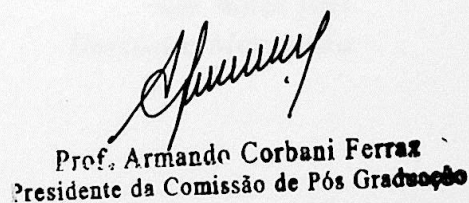 Prof. Armando Corbani Ferraz
Presidente da Comissão de Pós Graduação